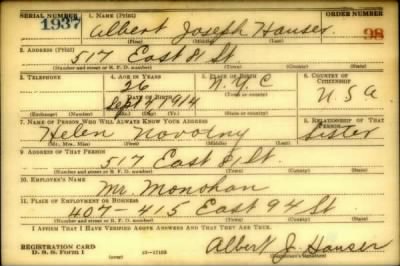 SERIAL NUMBER 1. NAME (Print) ORDER NUMBER
1937 Albert Joseph Hauser. 98
(First) (Middle) (Last)
2. ADDRESS (Print)
517 East 81 St
(Number and street or R. F. D. number) (Town) (County) (State)
3. TELEPHONE 4. AGE IN YEARS 5. PLACE OF BIRTH 6. COUNTRY OF CITIZENSHIP
26 N.Y.C
DATE OF BIRTH (Town or county)
Sept 27 1914 U.S.A
(Exchange) (Number) (Mo.) (Day) (Yr.) (State or country)
7. NAME OF PERSON WHO WILL ALWAYS KNOW YOUR ADDRESS 8. RELATIONSHIP OF THAT PERSON
Helen Novotny Sister
(Mr., Mrs., Miss) (First) (Middle) (Last)
9. ADDRESS OF THAT PERSON
517 East 81 St.
(Number and street or R. F. D. number) (Town) (County) (State)
10. EMPLOYER'S NAME
Mr. Monohan
11. PLACE OF EMPLOYMENT OR BUSINESS
407-415 East 94 St
(Number and street or R. F. D. number) (Town) (County) (State)
I AFFIRM THAT I HAVE VERIFIED ABOVE ANSWERS AND THAT THEY ARE TRUE.
REGISTRATION CARD
D. S. S. Form 1 Albert J. Hauser
(Registrant's signature)